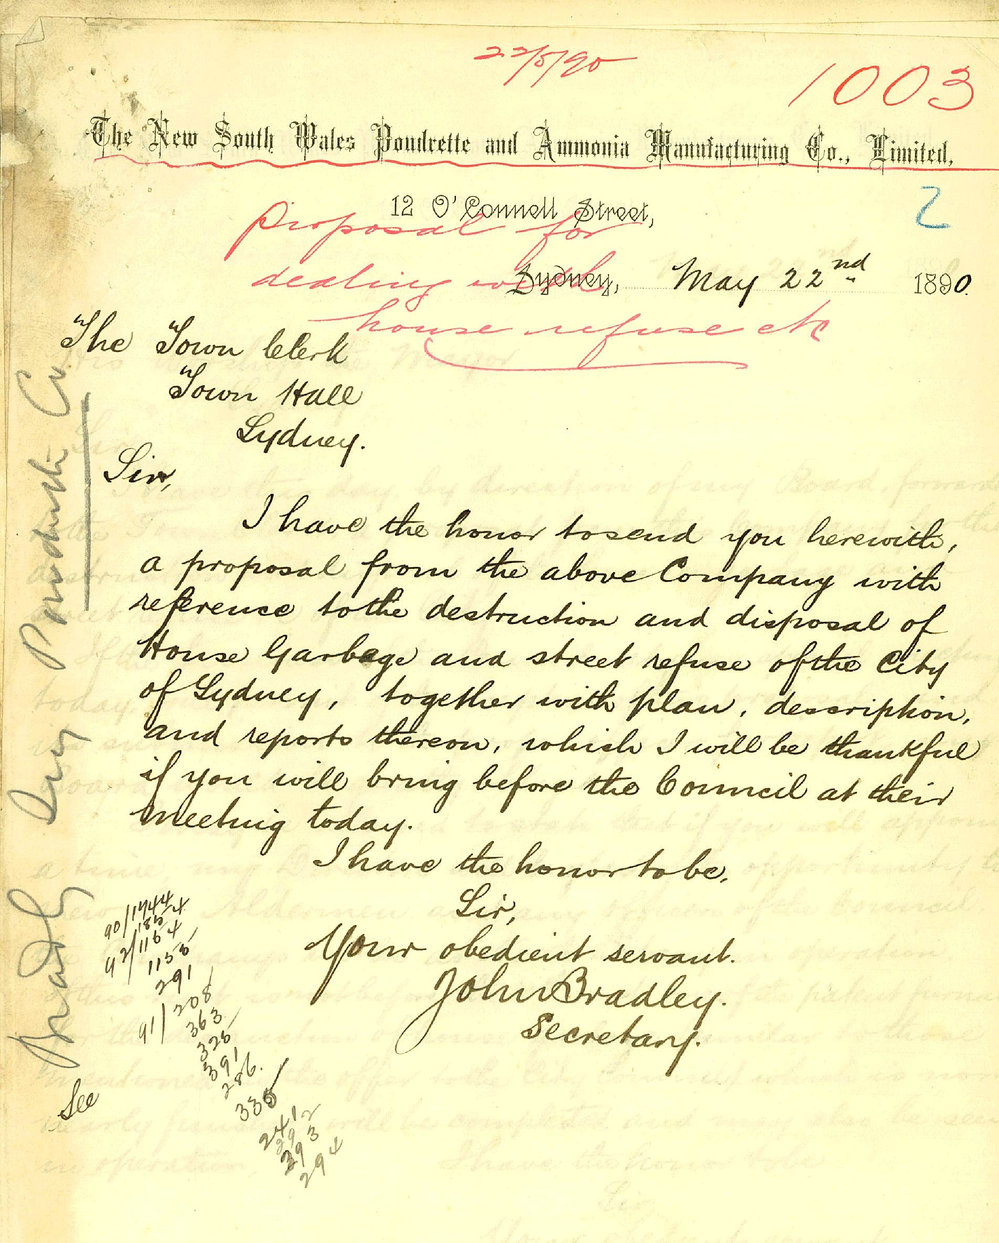 22/5/90
1003
The New South Wales Poudrette and Ammonia Manufacturing Co., Limited,
12 O'Connell Street,
2
Proposal for
dealing with
house refuse etc
Sydney, May 22nd 1890.
The Town Clerk
Town Hall
Sydney.
Sir,
I have the honor to send you herewith,
a proposal from the above Company with
reference to the destruction and disposal of
House Garbage and street refuse of the City
of Sydney, together with plan, description,
and reports thereon, which I will be thankful
if you will bring before the Council at their
meeting today.
I have the honor to be,
Sir,
Your obedient servant.
John Bradley.
Secretary.
Bradly Secy Poudrette Co.
See
90/1944
1854
92/1164
1155
291
91/208
363
326
391
286.
335
241
292
293
294